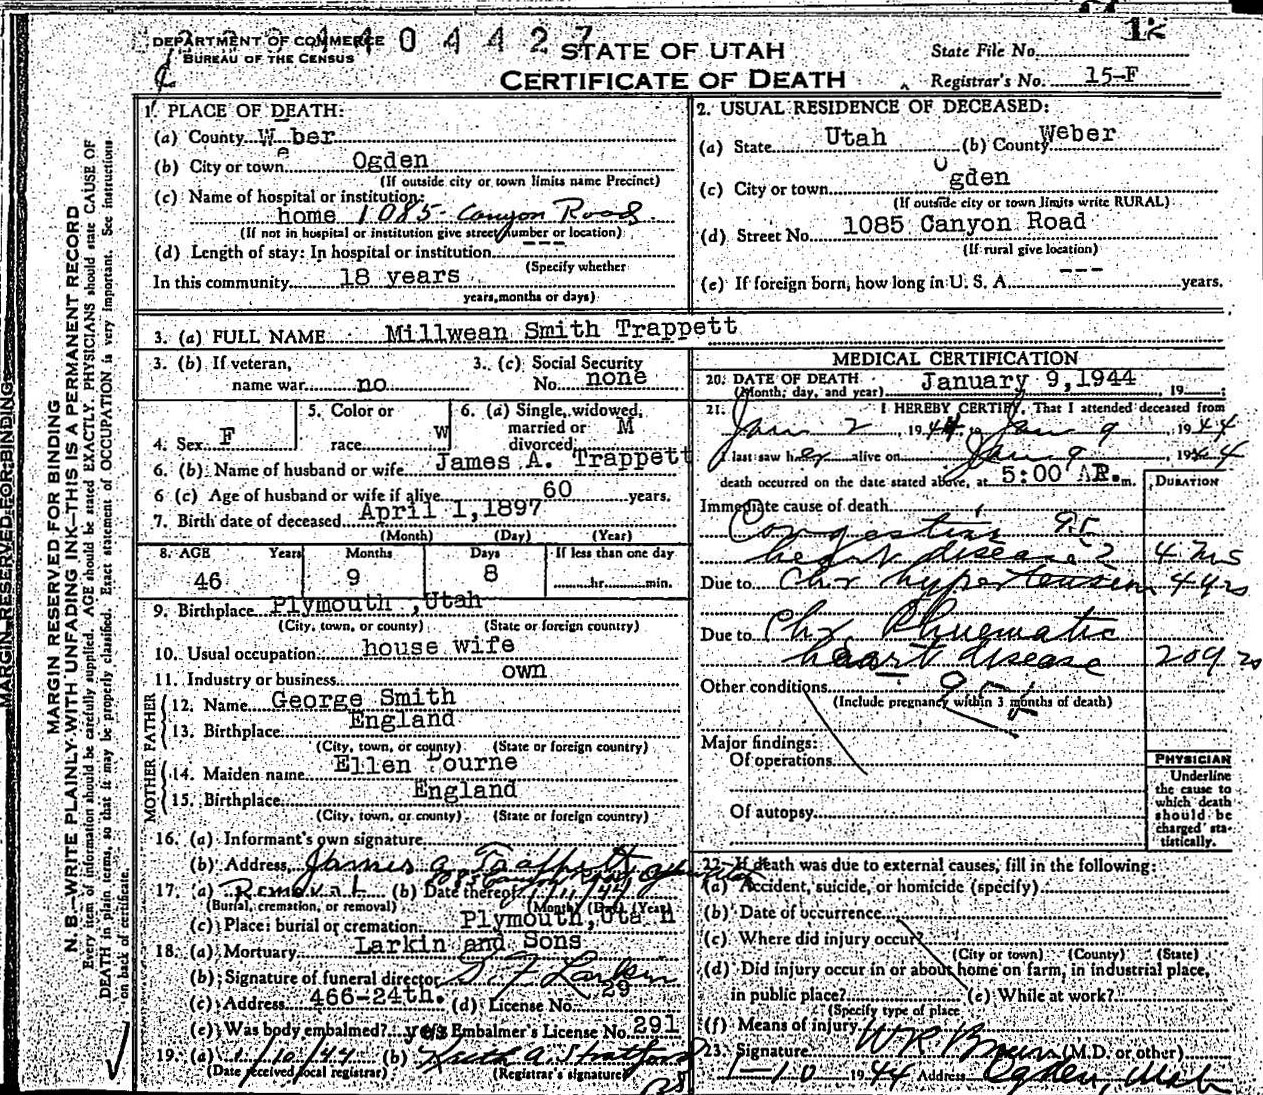 DEPARTMENT OF COMMERCE
BUREAU OF THE CENSUS
404427
STATE OF UTAH
CERTIFICATE OF DEATH
State File No. 12
Registrar's No. 15-F
MARGIN RESERVED FOR BINDING
MARGIN RESERVED FOR BINDING
N. B.—WRITE PLAINLY WITH UNFADING INK—THIS IS A PERMANENT RECORD
Every item of information should be carefully supplied. AGE should be stated EXACTLY. PHYSICIANS should state CAUSE OF
DEATH in plain terms, so that it may be properly classified. Exact statement of OCCUPATION is very important. See instructions
on back of certificate.
1. PLACE OF DEATH:
(a) County Weber
(b) City or town Ogden
(If outside city or town limits name Precinct)
(c) Name of hospital or institution:
home 1085 Canyon Road
(If not in hospital or institution give street number or location)
(d) Length of stay: In hospital or institution ---
(Specify whether
In this community 18 years
years, months or days)
2. USUAL RESIDENCE OF DECEASED:
(a) State Utah (b) County Weber
(c) City or town Ogden
(If outside city or town limits write RURAL)
(d) Street No. 1085 Canyon Road
(If rural give location)
(e) If foreign born, how long in U. S. A. --- years.
3. (a) FULL NAME Millwean Smith Trappett
3. (b) If veteran,
name war no
3. (c) Social Security
No. none
4. Sex F
5. Color or
race W
6. (a) Single, widowed,
married or M
divorced
6. (b) Name of husband or wife James A. Trappett
6 (c) Age of husband or wife if alive 60 years.
7. Birth date of deceased April 1, 1897
(Month) (Day) (Year)
8. AGE Years Months Days If less than one day
46 9 8 hr. min.
9. Birthplace Plymouth, Utah
(City, town, or county) (State or foreign country)
10. Usual occupation house wife
11. Industry or business own
FATHER
12. Name George Smith
13. Birthplace England
(City, town, or county) (State or foreign country)
MOTHER
14. Maiden name Ellen Bourne
15. Birthplace England
(City, town, or county) (State or foreign country)
16. (a) Informant's own signature
(b) Address James A Trappett 1085 Canyon Road Ogden Utah
17. (a) Removal (b) Date thereof 1/11/44
(Burial, cremation, or removal) (Month) (Day) (Year)
(c) Place: burial or cremation Plymouth, Utah
18. (a) Mortuary Larkin and Sons
(b) Signature of funeral director Larkin
(c) Address 466-24th. (d) License No. 29
(e) Was body embalmed? yes Embalmer's License No. 291
19. (a) 1/10/44 (b) Keith A. Stratford
(Date received local registrar) (Registrar's signature)
MEDICAL CERTIFICATION
20. DATE OF DEATH January 9, 1944
(Month, day, and year) 19
21. I HEREBY CERTIFY, That I attended deceased from
Jan 2, 1944 to Jan 9, 1944
I last saw her alive on Jan 9, 1944
death occurred on the date stated above, at 5:00 A. m.
DURATION
Immediate cause of death
Congestive
heart disease 4 mos
Due to Chr hypertension 4 yrs
Due to Chr. Rhuematic
heart disease 20 yrs
Other conditions
(Include pregnancy within 3 months of death)
95
Major findings:
Of operations
Of autopsy
PHYSICIAN
Underline
the cause to
which death
should be
charged sta-
tistically.
22. If death was due to external causes, fill in the following:
(a) Accident, suicide, or homicide (specify)
(b) Date of occurrence
(c) Where did injury occur?
(City or town) (County) (State)
(d) Did injury occur in or about home on farm, in industrial place,
in public place? (e) While at work?
(Specify type of place
(f) Means of injury
23. Signature WR Brown (M.D. or other)
1-10 1944 Address Ogden, Utah